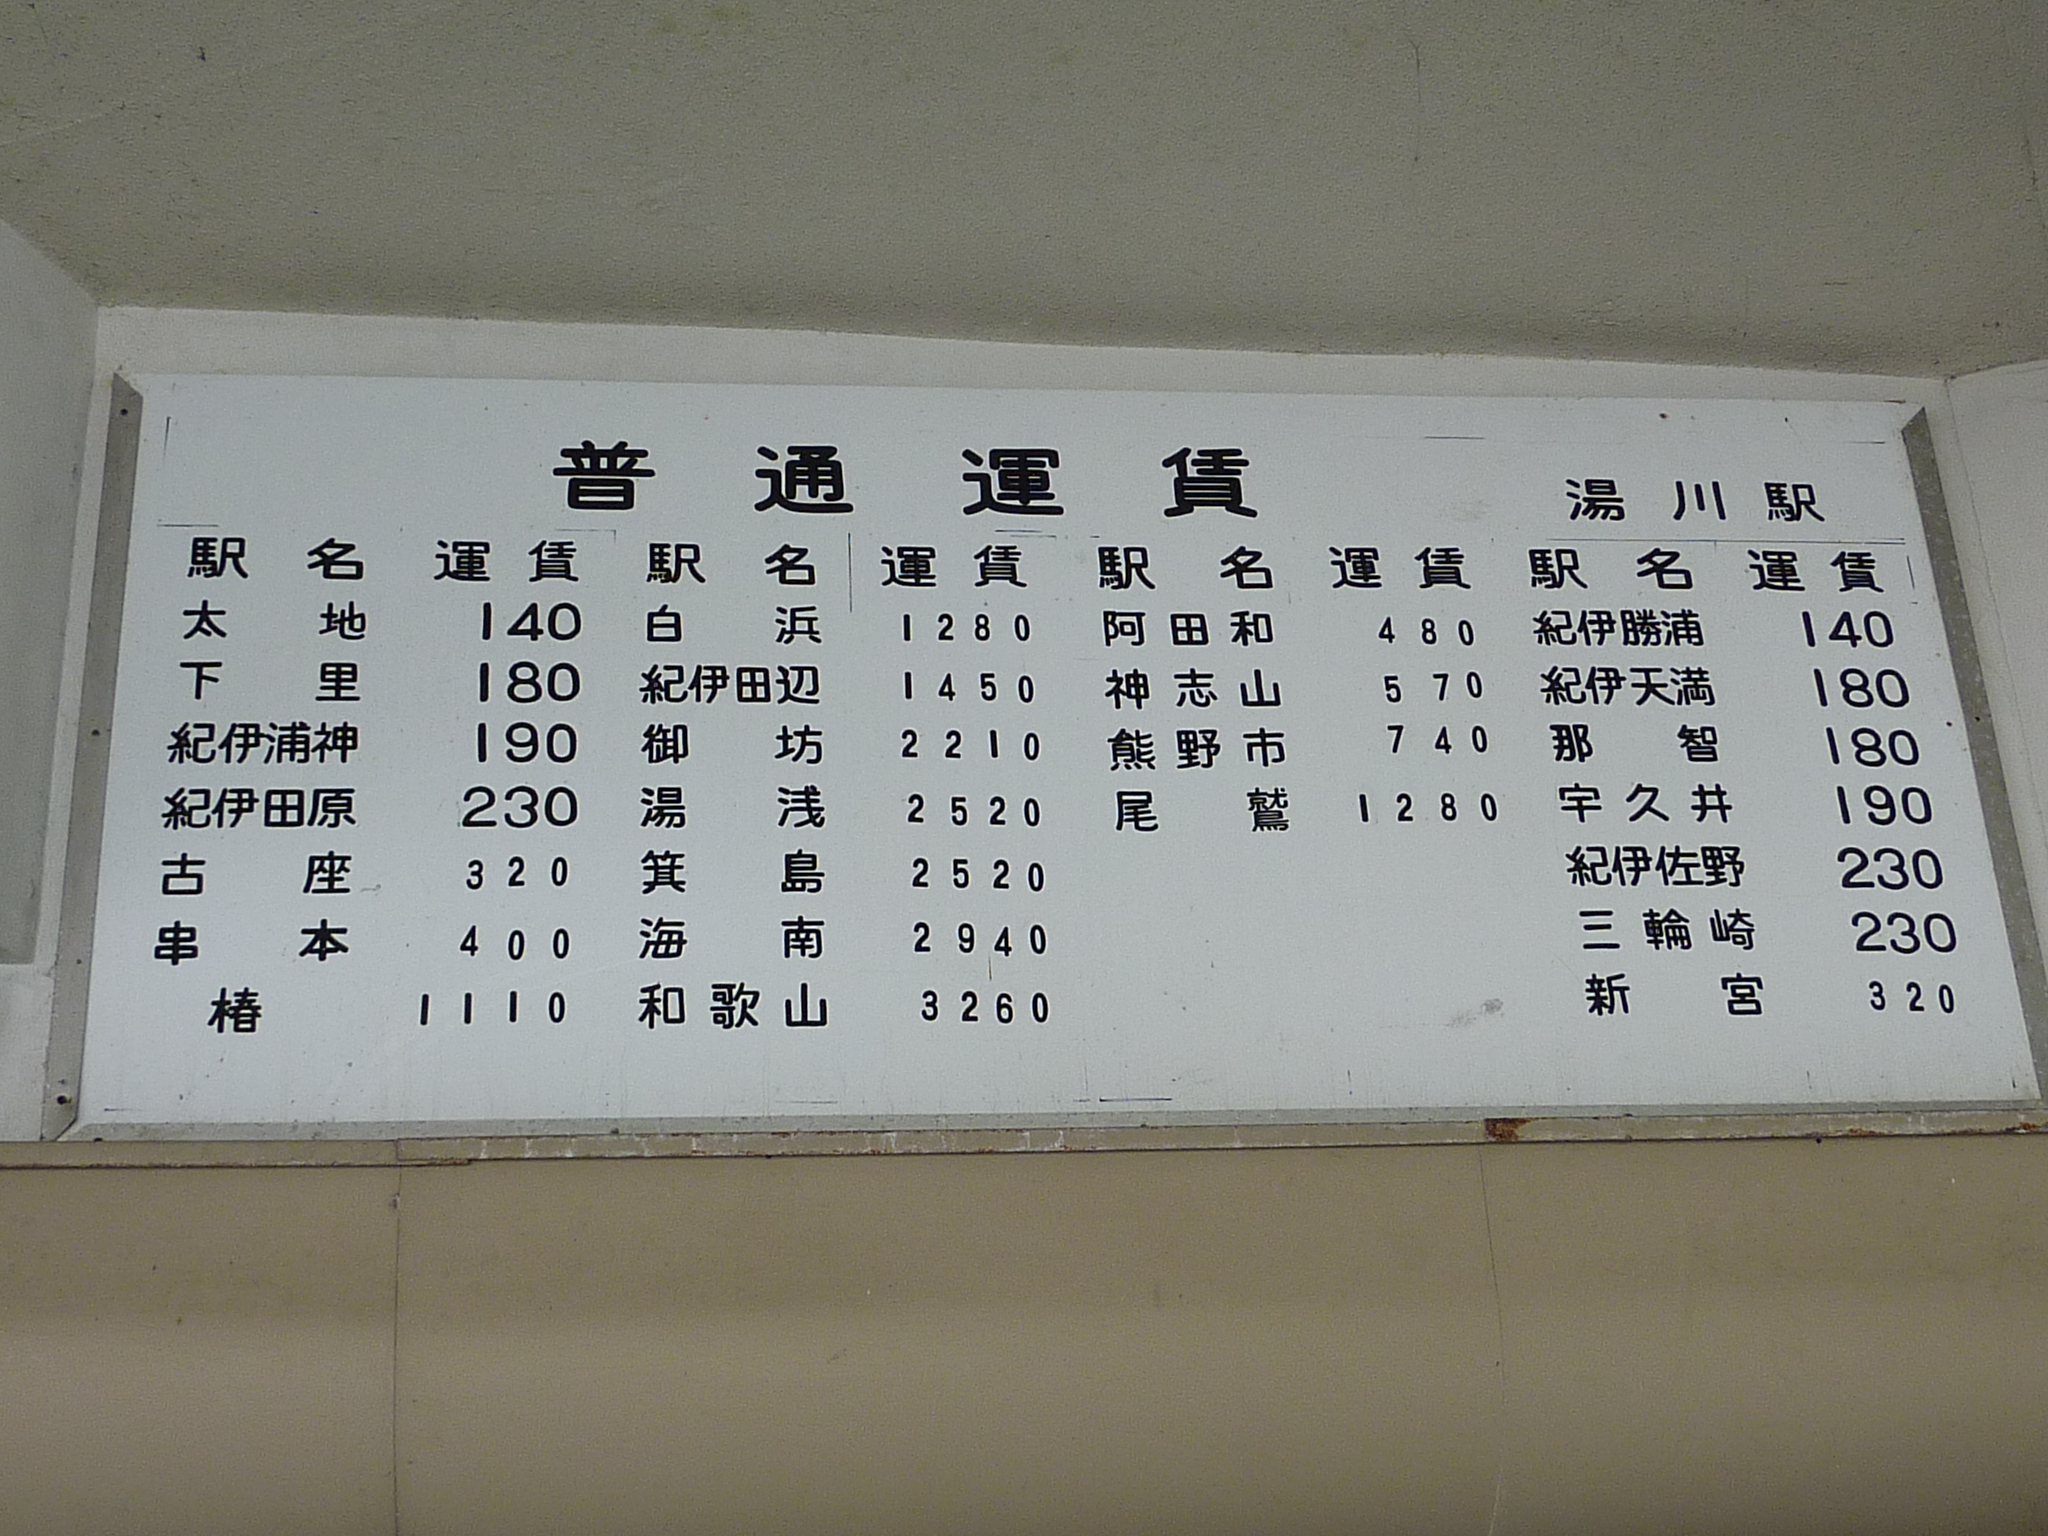 普通運賃
湯川駅
駅名 運賃 駅名 運賃 駅名 運賃 駅名 運賃
太地 140 白浜 1280 阿田和 480 紀伊勝浦 140
下里 180 紀伊田辺 1450 神志山 570 紀伊天満 180
紀伊浦神 190 御坊 2210 熊野市 740 那智 180
紀伊田原 230 湯浅 2520 尾鷲 1280 宇久井 190
古座 320 箕島 2520 紀伊佐野 230
串本 400 海南 2940 三輪崎 230
椿 1110 和歌山 3260 新宮 320